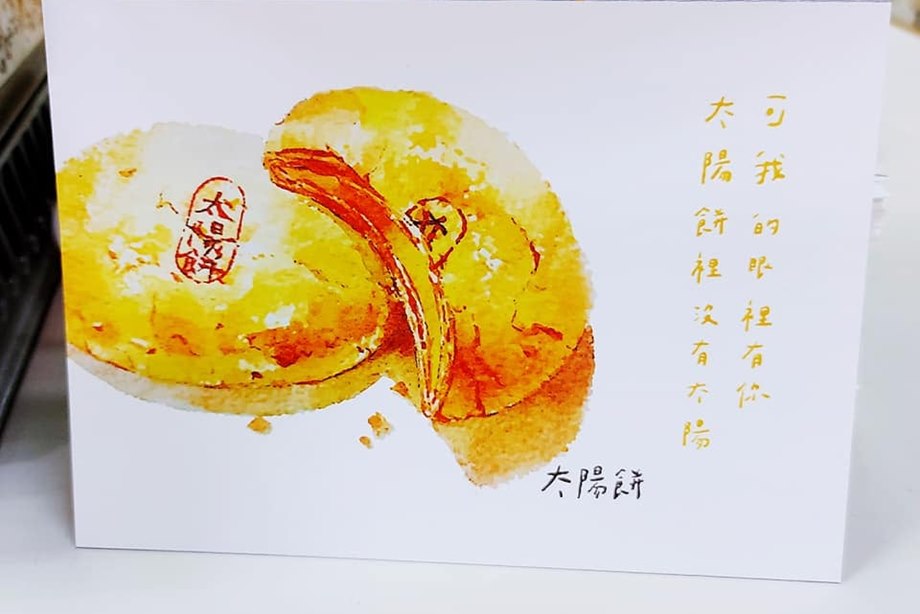 可我的眼裡有你
太陽餅裡沒有太陽
太陽餅
太
太陽餅